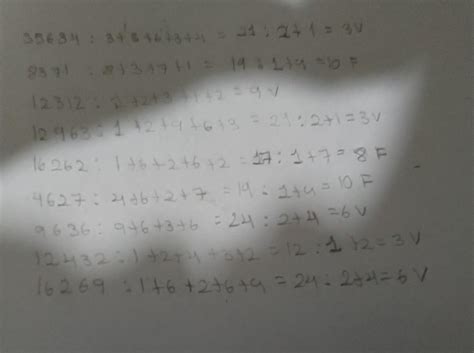 35634 : 3+5+6+3+4 = 21 : 2+1 = 3V
8371 : 8+3+7+1 = 19 : 1+9 = 10 F
12312 : 1+2+3+1+2 = 9 V
12963 : 1+2+9+6+3 = 21 : 2+1 = 3V
16262 : 1+6+2+6+2 = 17 : 1+7 = 8 F
4627 : 4+6+2+7 = 19 : 1+9 = 10 F
9636 : 9+6+3+6 = 24 : 2+4 = 6 V
12432 : 1+2+4+3+2 = 12 : 1+2 = 3 V
16269 : 1+6+2+6+9 = 24 : 2+4 = 6 V